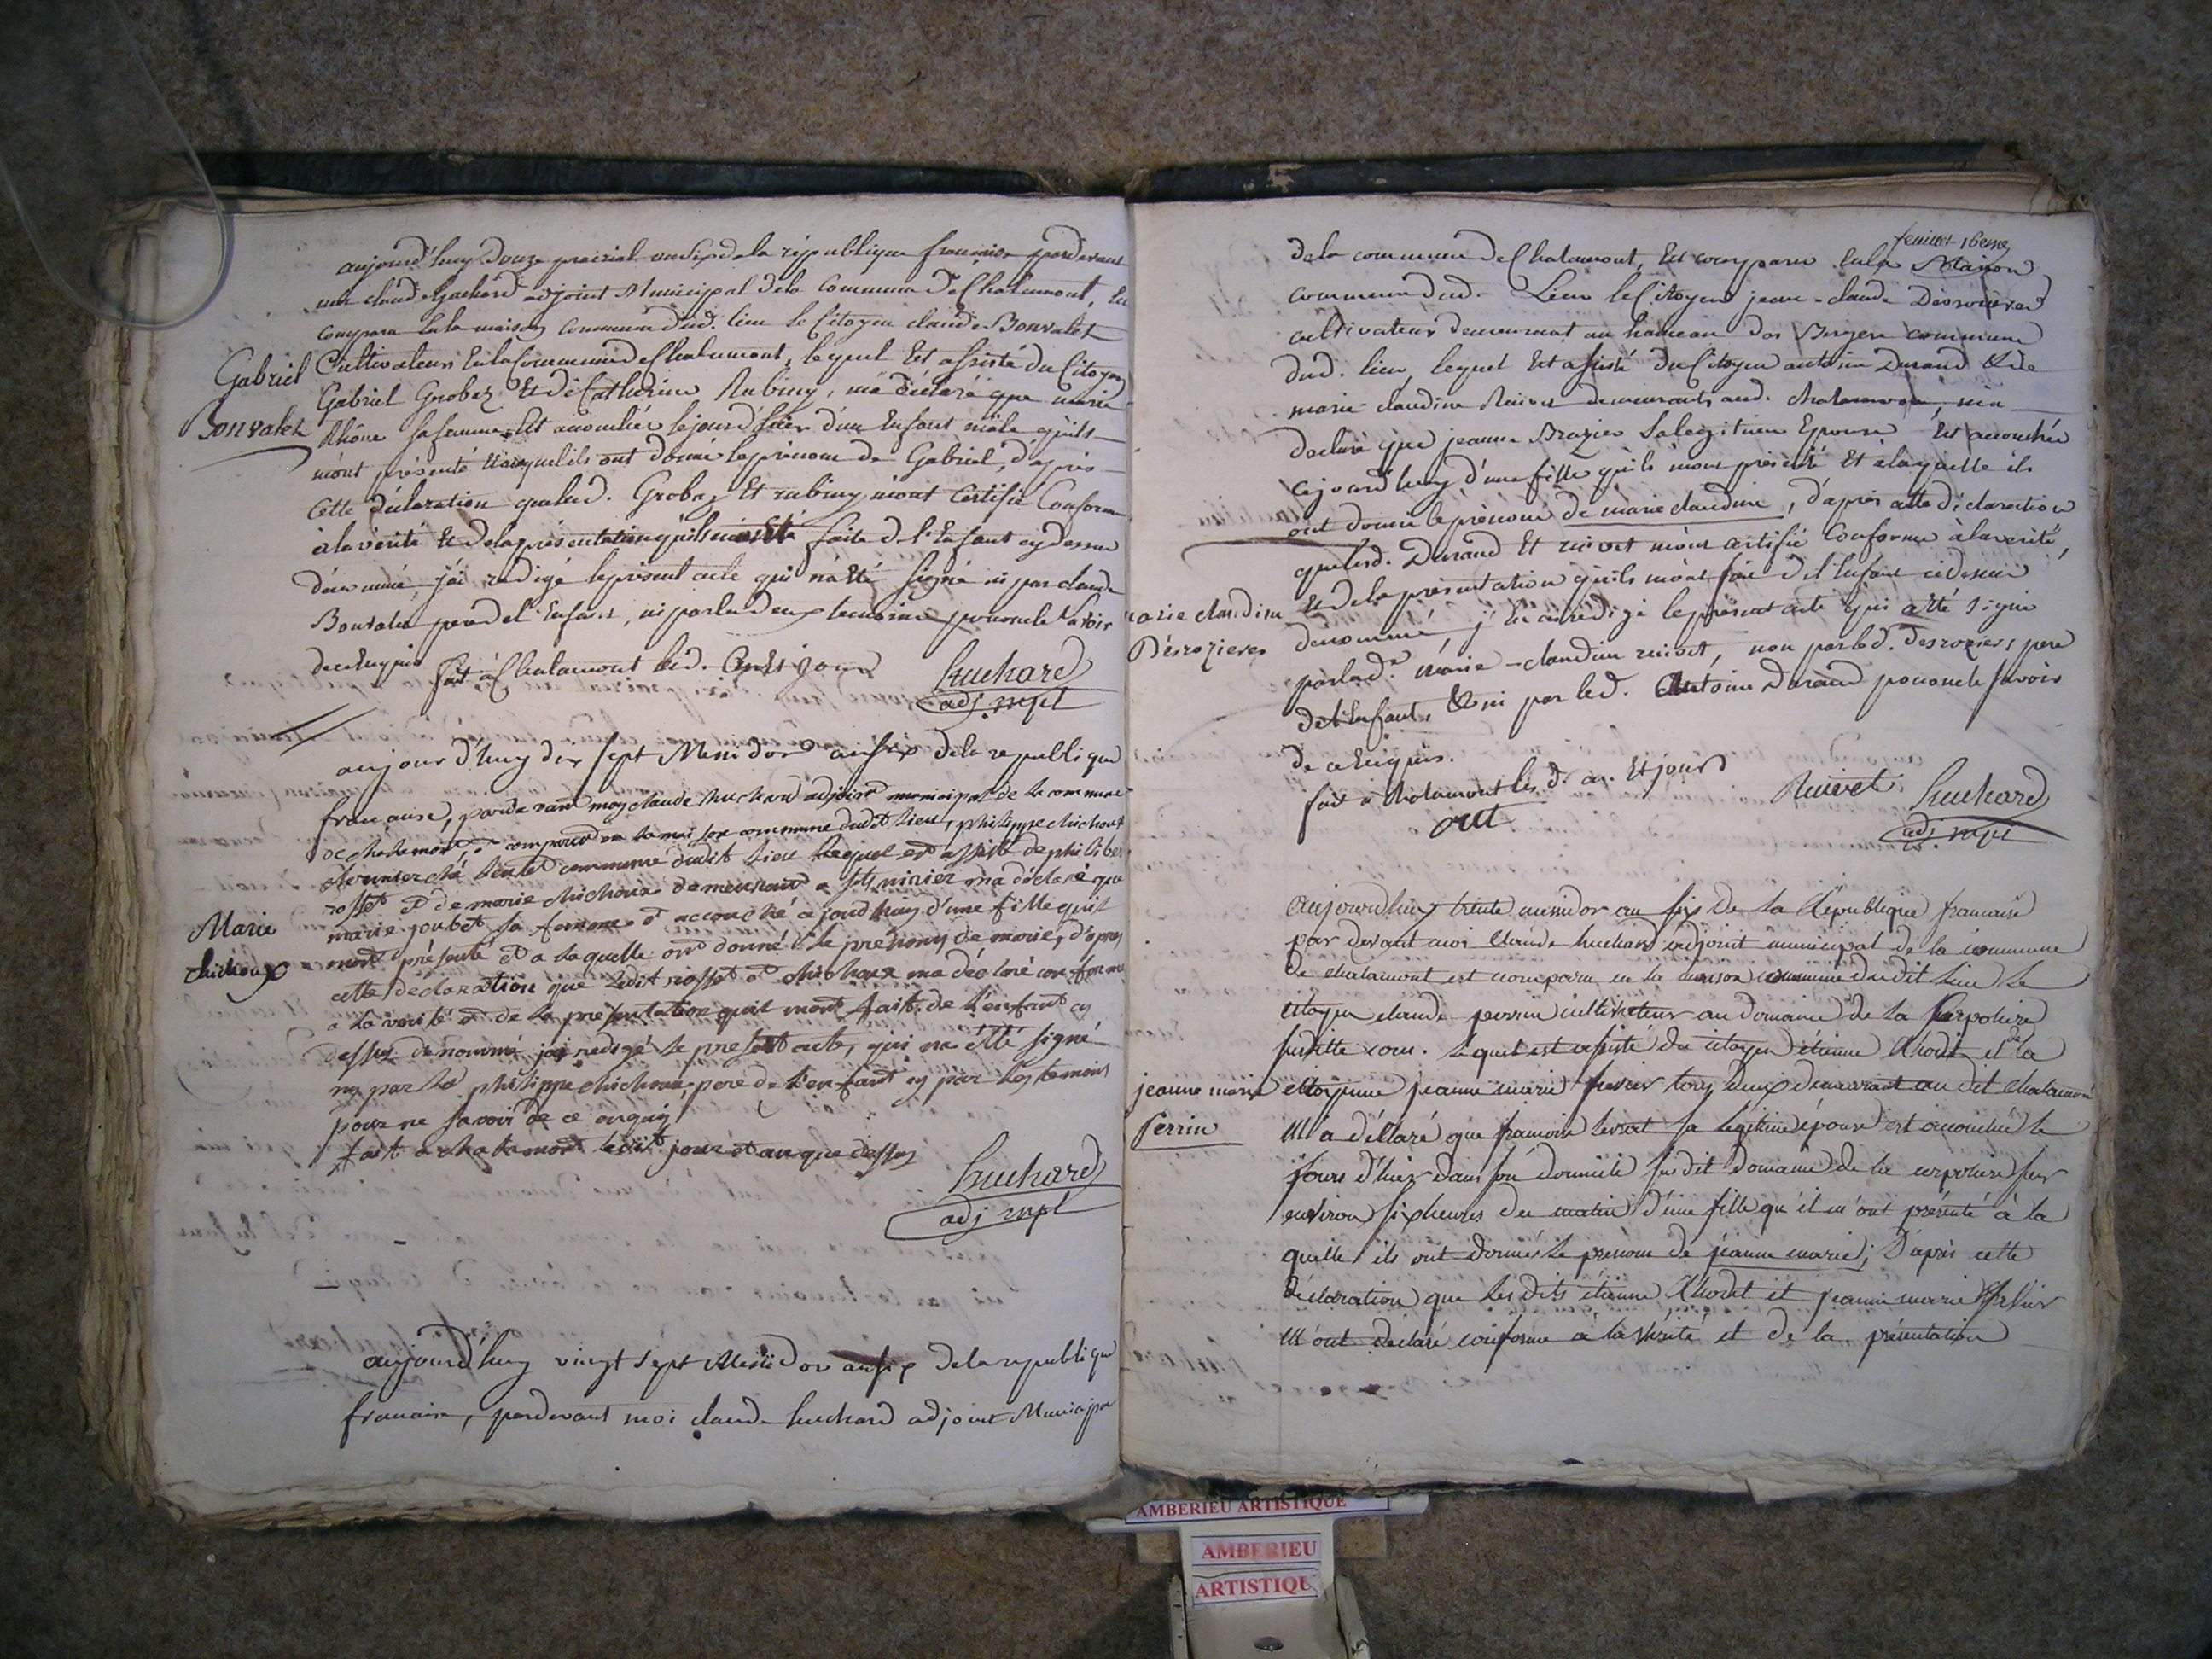 aujourd'huy douze prairial an six dela république francaise pardevant
moi claude huchard adjoint Municipal dela Commune De Chalamont, Est
comparu en la maison Commune dud. lieu le Citoyen claude Bonvalet
Cultivateur En la Commune de Chalamont, lequel Est assisté du Citoyen
Gabriel Grobaz Et de Catherine Rubiny, m'a déclaré que marie
Rhône sa femme Est accouchée lejourd'hier d'un Enfant mâle qu'ils
m'ont présenté & auquel ils ont donné le prénom de Gabriel, d'après
Cette déclaration que lesd. Grobaz Et rubiny m'ont Certifié Conforme
à la vérité Et delaprésentation qu'ils m'ont faite de l'Enfant cy dessus
dénommé, j'ai rédigé le présent acte qui n'a Eté signé ni par claude
Bonvalet pere de l'Enfant, ni par les deux temoins pour ne le savoir
de ce Enquis
fait à Chalamont led. an Et jour
huchard
adj. mpl
Gabriel
Bonvalet
aujour d'huy dix sept Messidor an six dela republique
francaise, pardevant moy claude huchard adjoint municipal de la commune
de chalamont, est comparu en la maison commune dudit lieu, philippe chichoux
commune dudit lieu lequel est assisté de philibert
rosset et de marie chichoux demeurant a m'a déclaré que
marie joubet sa femme est accouché ajourd'huy d'une fille qu'il
m'ont présenté et a laquelle ont donné le prenom de marie, d'apres
cette declaration que ledit rosset et chichoux m'a déclaré conforme
a la verité et de la presentation qu'il m'ont fait de l'enfant cy
dessus denommé j'ai redigé le present acte, qui n'a étté signé
ny par le philippe chichoux, pere de l'enfant ny par les temoins
pour ne savoir de ce enquis
fait a chalamont ledit jour et an que dessus
huchard
adj mpl
Marie
chichoux
aujourd'huy vingt sept Messidor an six dela republique
francaise, pardevant moi claude huchard adjoint Municipal
feuillet 16eme
dela commune de Chalamont, Est comparu en la Maison
commune dud. Lieu le Citoyen jean-claude Désrozieres
cultivateur demeurant au hameau des commune
dud. lieu, lequel Est assisté du Citoyen antoine Durand & de
marie claudine Ruivet demeurants aud. chalamont, m'a
declaré que jeanne Brazier sa legitime Epouse Est accouchée
cejourd'huy d'une fille qu'ils m'ont présenté Et à laquelle ils
ont donné le prénom de marie claudine, d'après cette déclaration
que lesd. Durand Et ruivet m'ont certifié Conforme à la verité,
Et de la présentation qu'ils m'ont faite de l'Enfant ci dessus
dénommé, j'En ai rédigé le présent acte qui a Eté signé
par lad. marie-claudine ruivet, non par led. desroziers pere
de l'Enfant, & ni par led. Antoine Durand pour ne le savoir
de ce Enquis.
fait à Chalamont les d. an. Et jour
Ruivet huchard
adj. mpl
marie claudine
Désrozieres
aujourd'huy trente messidor an six de la République francaise
par devant moi claude huchard adjoint municipal de la commune
de chalamont est comparu en la maison commune dudit lieu le
citoyen claude perrin cultivateur au domaine de la
susditte com. lequel est assisté du citoyen étienne et de la
citoyenne jeanne marie tous deux demeurant au dit chalamont
M'a déclaré que francoise sa légitime épouse est accouchée le
jours d'hier dans son domicile susdit domaine de la sur
environ six heures du matin d'une fille qu'il m'ont présenté à la
quelle ils ont donnés le prenom de jeanne marie; D'après cette
déclaration que les dits étienne et jeanne marie
M'ont déclaré conforme à la vérité et de la présentation
jeanne marie
Perrin
AMBERIEU ARTISTIQUE
AMBERIEU
ARTISTIQU